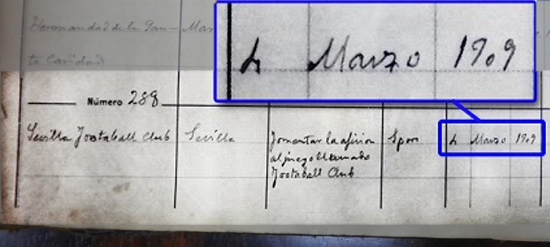 Hermandad de la San-
ta Caridad
4 Marzo 1909
Número 288
Sevilla Footaball Club
Sevilla
Fomentar la aficion
al juego llamado
Footaball Club
Spor
4 Marzo 1909